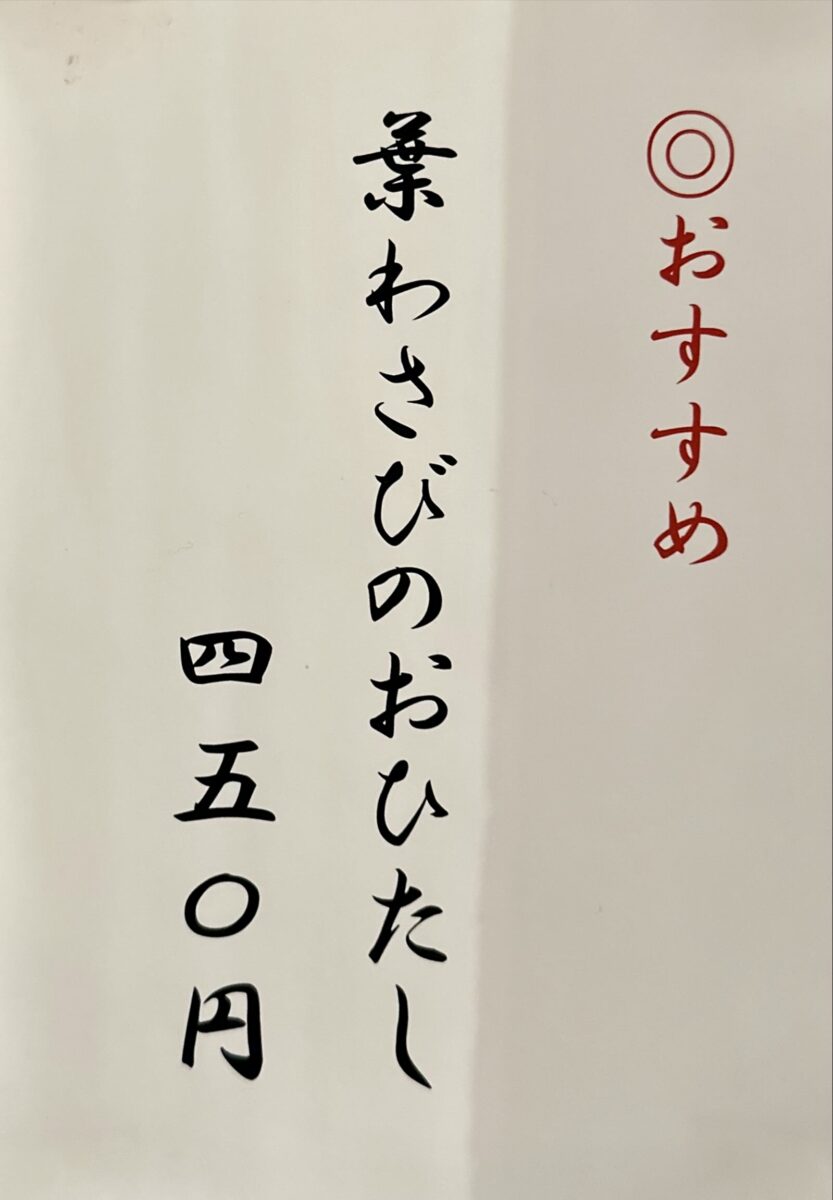 ◎おすすめ
葉わさびのおひたし
四五〇円